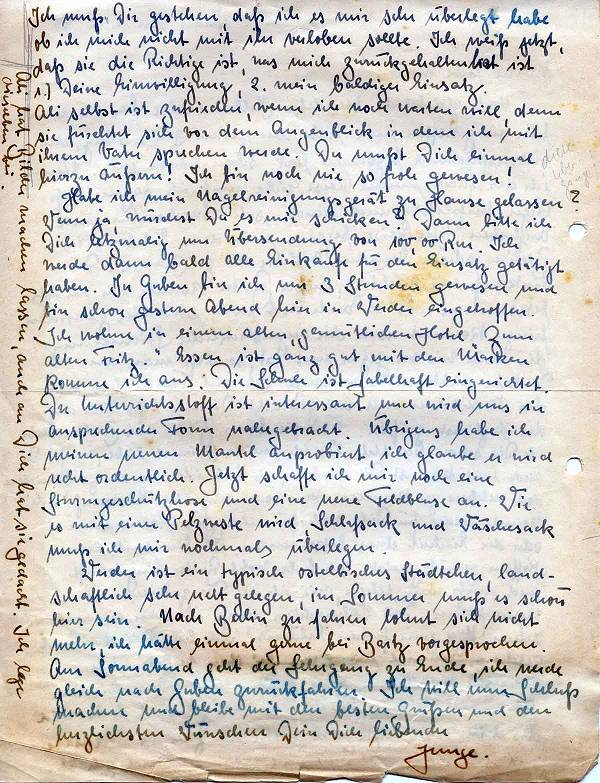 Ich muß Dir gestehen, daß ich es mir sehr überlegt habe
ob ich mich nicht mit ihr verloben sollte. Ich weiß jetzt,
daß sie die Richtige ist, was mich zurückgehalten hat ist
1.) Deine Einwilligung, 2. mein baldiger Einsatz.
Ali selbst ist zufrieden, wenn ich noch warten will, denn
sie fürchtet sich vor dem Augenblick in dem ich mit
ihrem Vater sprechen werde. Du mußt Dich einmal
hierzu äußern! Ich bin noch nie so froh gewesen!
Habe ich mein Nagelreinigungsgerät zu Hause gelassen?
Wenn ja, würdest Du es mir schicken? Dann bitte ich
Dich letzmalig um Übersendung von 100,00 Rm. Ich
werde dann bald alle Einkäufe für den Einsatz getätigt
haben. In Guben bin ich nur 3 Stunden gewesen und
bin schon gestern Abend hier in Werder eingetroffen.
Ich wohne in einem alten, gemütlichen Hotel "Zum
alten Fritz." Essen ist ganz gut mit den Marken
komme ich aus. Die Schule ist fabelhaft eingerichtet.
Der Unterrichtsstoff ist interessant und wird uns in
ansprechender Form nahegebracht. Übrigens habe ich
meinen neuen Mantel anprobiert, ich glaube er wird
recht ordentlich. Jetzt schaffe ich mir noch eine
Sturmgeschützhose und eine neue Feldbluse an. Wie
es mit einer Pelzweste wird Schlafsack und Wäschesack
muß ich mir nochmals überlegen.
Werder ist ein typisch ostelbisches Städtchen, land-
schaftlich sehr nett gelegen, im Sommer muß es schön
hier sein. Nach Berlin zu fahren lohnt sich nicht
mehr, ich hätte einmal gerne bei Bartz vorgesprochen.
Am Sonnabend geht der Lehrgang zu Ende, ich werde
gleich nach Guben zurückfahren. Ich will nun Schluß
machen und bleibe mit den besten Grüßen und den
herzlichsten Wünschen Dein Dich liebender
Junge.
Ali hat Bilder machen lassen, auch an Dich hat sie gedacht. Ich lege